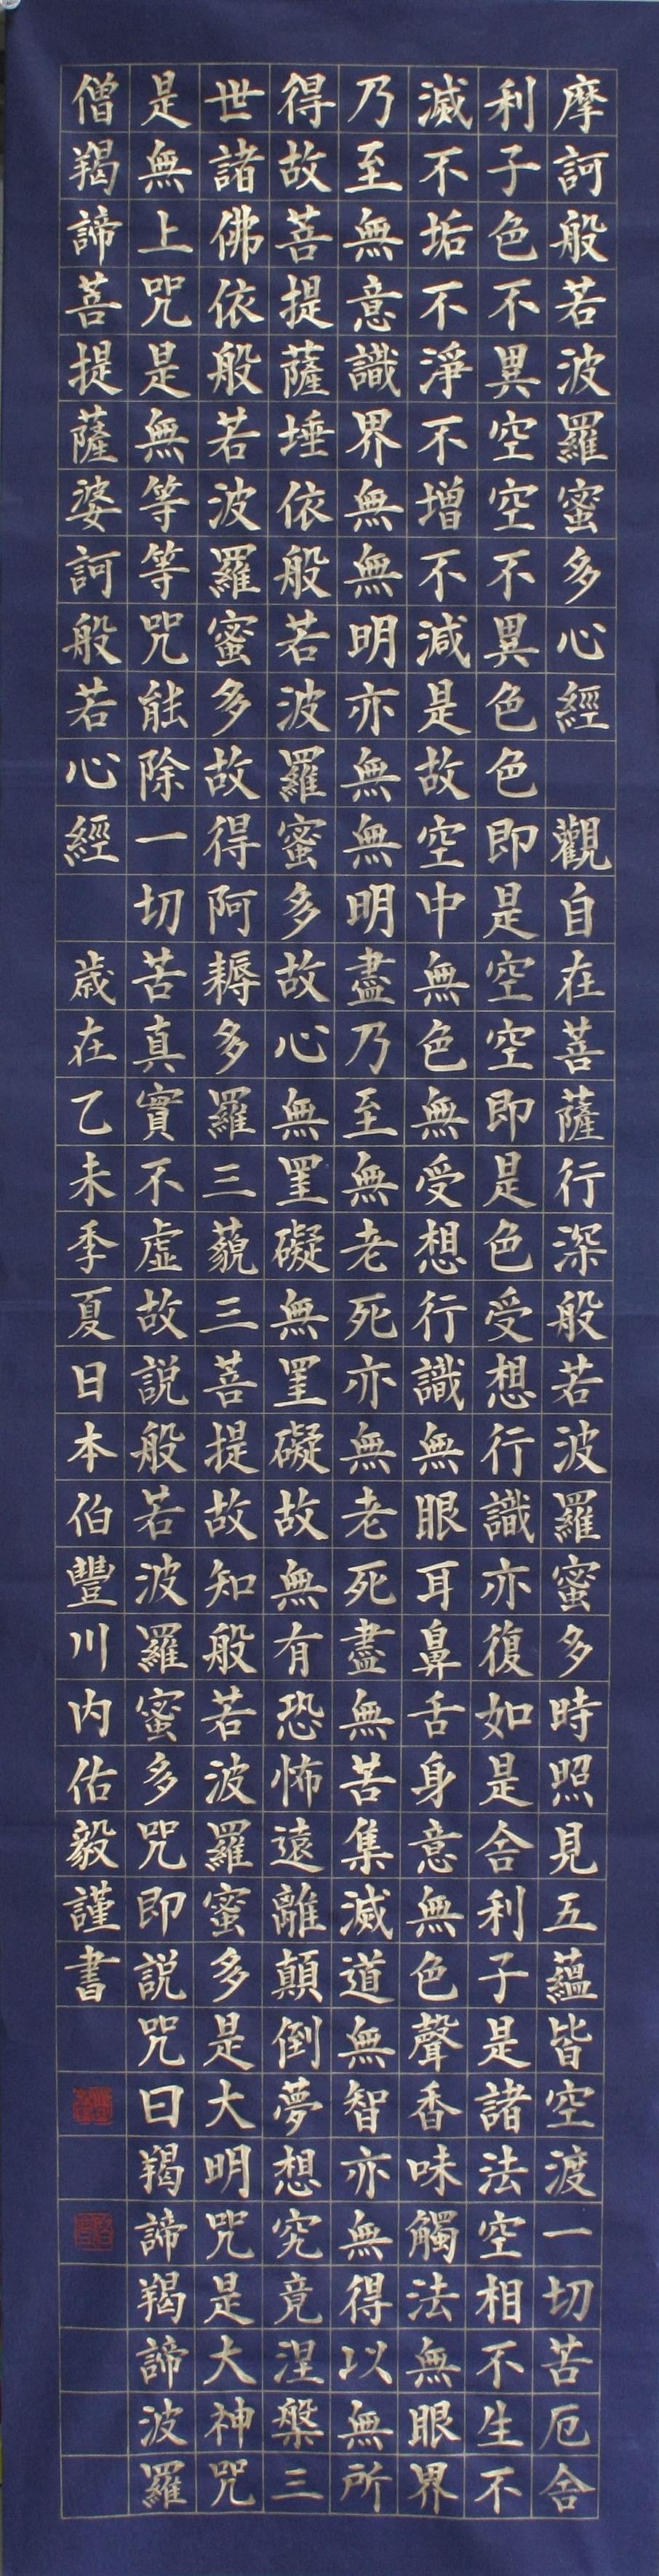 摩訶般若波羅蜜多心經　觀自在菩薩行深般若波羅蜜多時照見五蘊皆空渡一切苦厄舍
利子色不異空空不異色色即是空空即是色受想行識亦復如是舍利子是諸法空相不生不
滅不垢不淨不增不減是故空中無色無受想行識無眼耳鼻舌身意無色聲香味觸法無眼界
乃至無意識界無無明亦無無明盡乃至無老死亦無老死盡無苦集滅道無智亦無得以無所
得故菩提薩埵依般若波羅蜜多故心無罣礙無罣礙故無有恐怖遠離顛倒夢想究竟涅槃三
世諸佛依般若波羅蜜多故得阿耨多羅三藐三菩提故知般若波羅蜜多是大明咒是大神咒
是無上咒是無等等咒能除一切苦真實不虛故說般若波羅蜜多咒即說咒曰羯諦羯諦波羅
僧羯諦菩提薩婆訶般若心經　歲在乙未季夏日本伯豐川内佑毅謹書